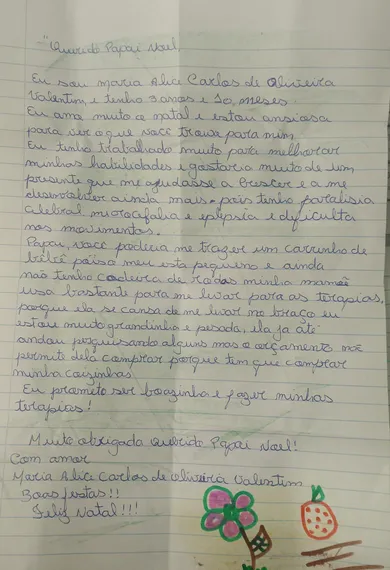 "Querido Papai Noel,
Eu sou Maria Alice Carlos de Oliveira
Valentim, e tenho 3 anos e 10, meses.
Eu amo muito o natal e estou ansiosa
para ver o que você trouxe para mim.
Eu tenho trabalhado muito para melhorar
minhas habilidades e gostaria muito de um
presente que me ajudasse a crescer e a me
desenvolver ainda mais. pois tenho paralisia
celebral microcefalia e epilepsia e dificulta
nos movimentos.
Papai, você poderia me trazer um carrinho de
bebê pois o meu está pequeno e ainda
não tenho cadeira de rodas minha mamãe
usa bastante para me levar para as terapias,
porque ela se cansa de me levar no braço eu
estou muito grandinha e pesada, ela já até
andou pesquisando alguns mas o orçamento não
permite dela comprar porque tem que comprar
minha coizinhas.
Eu prometo ser boazinha e fazer minhas
terapias!
Muito obrigada Querido Papai Noel!
Com amor
Maria Alice Carlos de Oliveira Valentim
Boas festas!!
Feliz Natal!!!